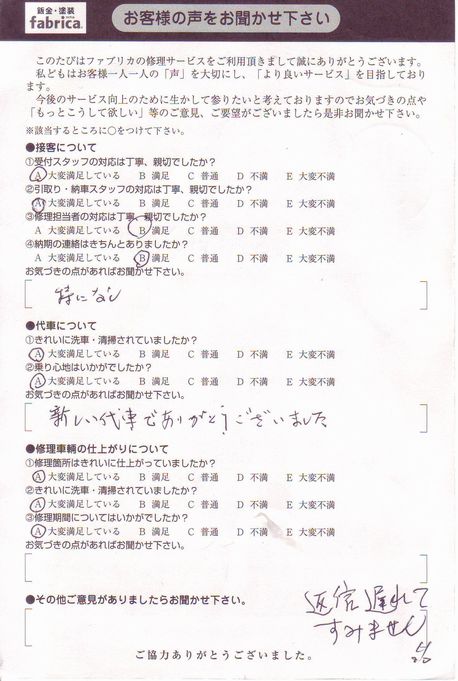 鈑金・塗装
fabrica.
お客様の声をお聞かせ下さい
このたびはファブリカの修理サービスをご利用頂きまして誠にありがとうございます。
私どもはお客様一人一人の「声」を大切にし、「より良いサービス」を目指しており
ます。
今後のサービス向上のために生かして参りたいと考えておりますのでお気づきの点や
「もっとこうして欲しい」等のご意見、ご要望がございましたら是非お聞かせ下さい。
※該当するところに○をつけて下さい。
●接客について
①受付スタッフの対応は丁寧、親切でしたか?
A 大変満足している B 満足 C 普通 D 不満 E 大変不満
②引取り・納車スタッフの対応は丁寧、親切でしたか?
A 大変満足している B 満足 C 普通 D 不満 E 大変不満
③修理担当者の対応は丁寧、親切でしたか?
A 大変満足している B 満足 C 普通 D 不満 E 大変不満
④納期の連絡はきちんとありましたか?
A 大変満足している B 満足 C 普通 D 不満 E 大変不満
お気づきの点があればお聞かせ下さい。
特になし
●代車について
①きれいに洗車・清掃されていましたか?
A 大変満足している B 満足 C 普通 D 不満 E 大変不満
②乗り心地はいかがでしたか?
A 大変満足している B 満足 C 普通 D 不満 E 大変不満
お気づきの点があればお聞かせ下さい。
新しい代車でありがとうございました
●修理車輌の仕上がりについて
①修理箇所はきれいに仕上がっていましたか?
A 大変満足している B 満足 C 普通 D 不満 E 大変不満
②きれいに洗車・清掃されていましたか?
A 大変満足している B 満足 C 普通 D 不満 E 大変不満
③修理期間についてはいかがでしたか?
A 大変満足している B 満足 C 普通 D 不満 E 大変不満
お気づきの点があればお聞かせ下さい。
●その他ご意見がありましたらお聞かせ下さい。
返信遅れて
すみません
ご協力ありがとうございました。